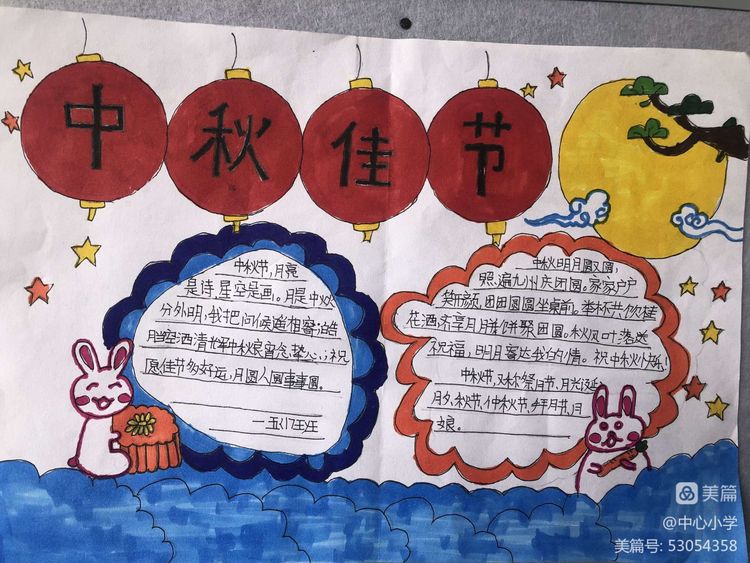 中秋佳节
中秋节,月亮
是诗,星空是画。月是中秋
分外明,我把问候遥相寄;皓
月当空洒清辉,中秋良宵念挚心;祝
愿佳节多好运,月圆人圆事事圆。
中秋明月圆又圆,
照遍九州庆团圆。家家户户
笑开颜,团团圆圆坐桌前。举杯共饮桂
花酒,齐享月月饼聚团圆。秋风叶落送
祝福,明月寄达我的情。祝中秋快乐!
中秋节,又称祭月节、月光诞、
月夕、秋节、仲秋节、拜月节、月
娘。
美篇
@中心小学
美篇号: 53054358